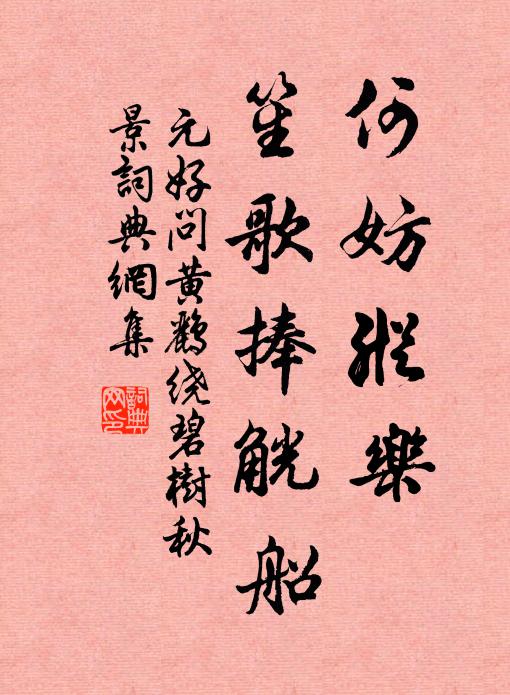 何妨縱樂
笙歌捧觥船
元好问黄鶴绕碧樹秋
景詞典網集
詞典
网印